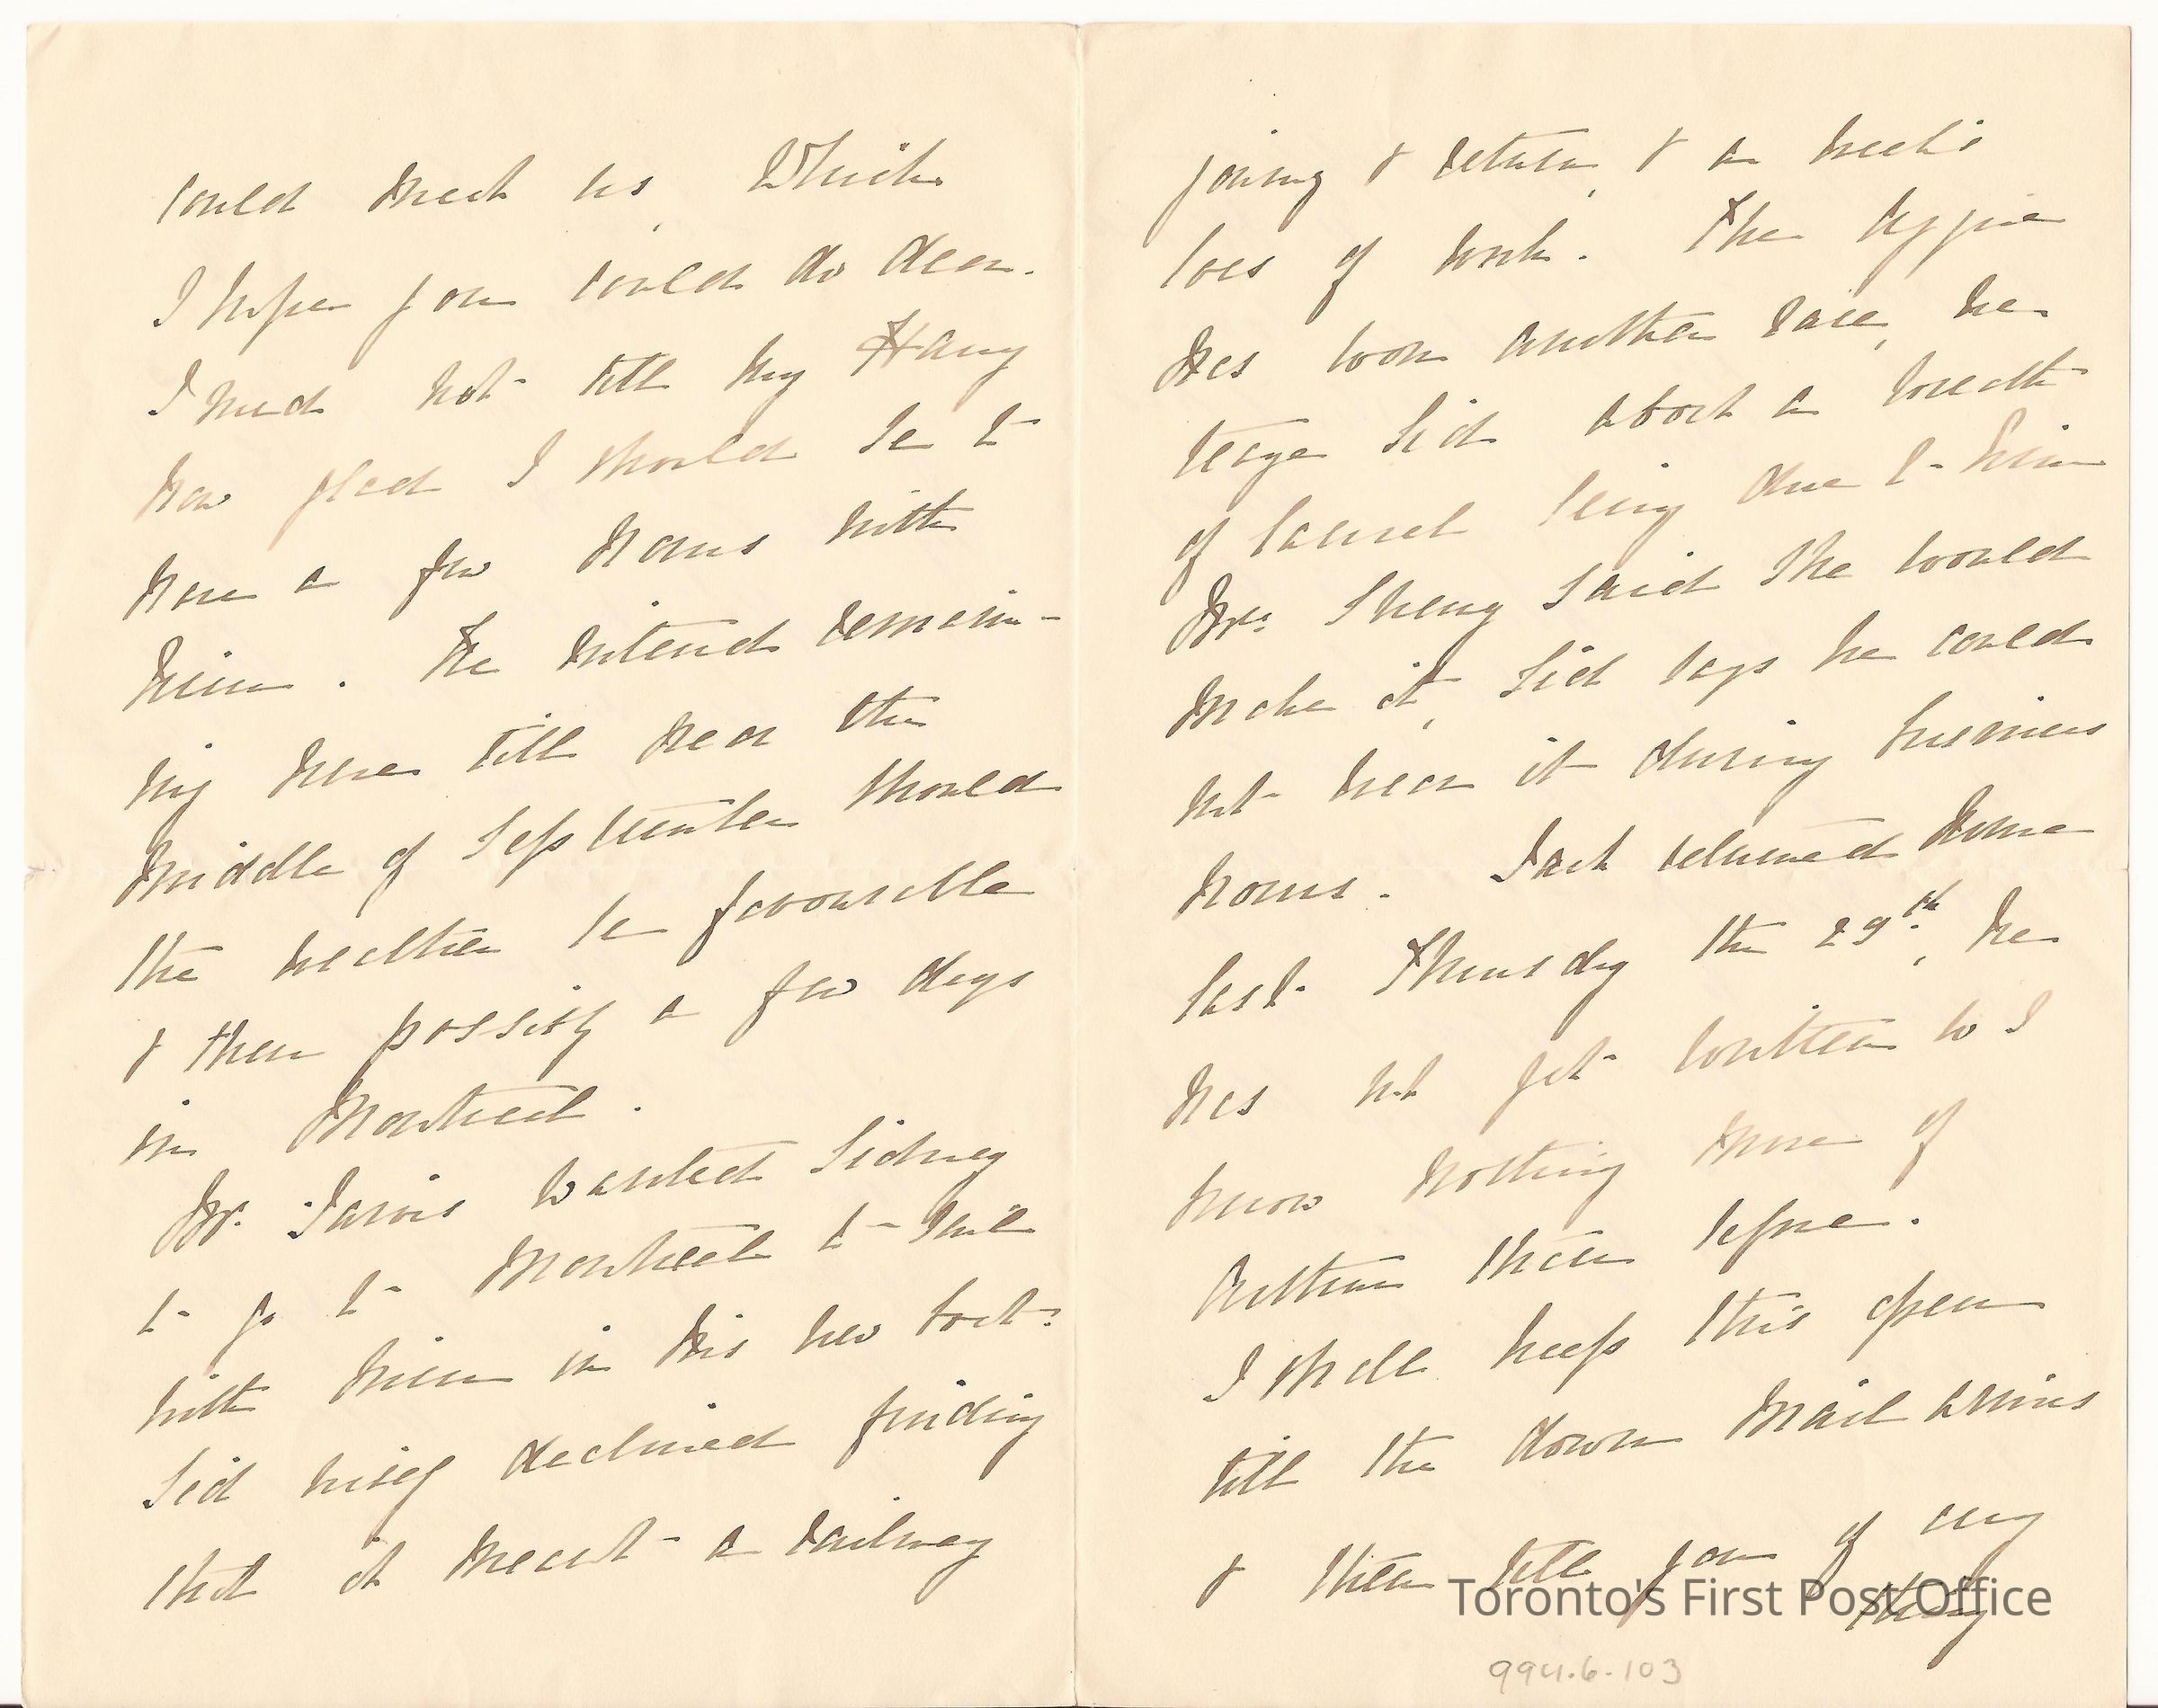 could meet us, Which
I hope you could do dear.
I need not tell my Harry
how glad I should be to
have a few hours with
him. We intend remain-
ing here till near the
middle of September should
the weather be favourable
& then possibly a few days
in Montreal.
Mr. Jarvis wanted Sidney
to go to Montreal to sail
with him in his new boat.
Sid wisely declined finding
that it meant a railway
journey & return, & a week's
loss of work. The
has won another race, he
Sid about a wreath
of laurel being due to him
Mrs said she would
make it, Sid says he could
not wear it during business
hours. Jack returned home
last Thursday the 29th, he
has not yet written so I
know nothing more of
Arthur than before.
I shall keep this open
till the down mail arrives
& then tell you of any
thing
Toronto's First Post Office
994.6.103